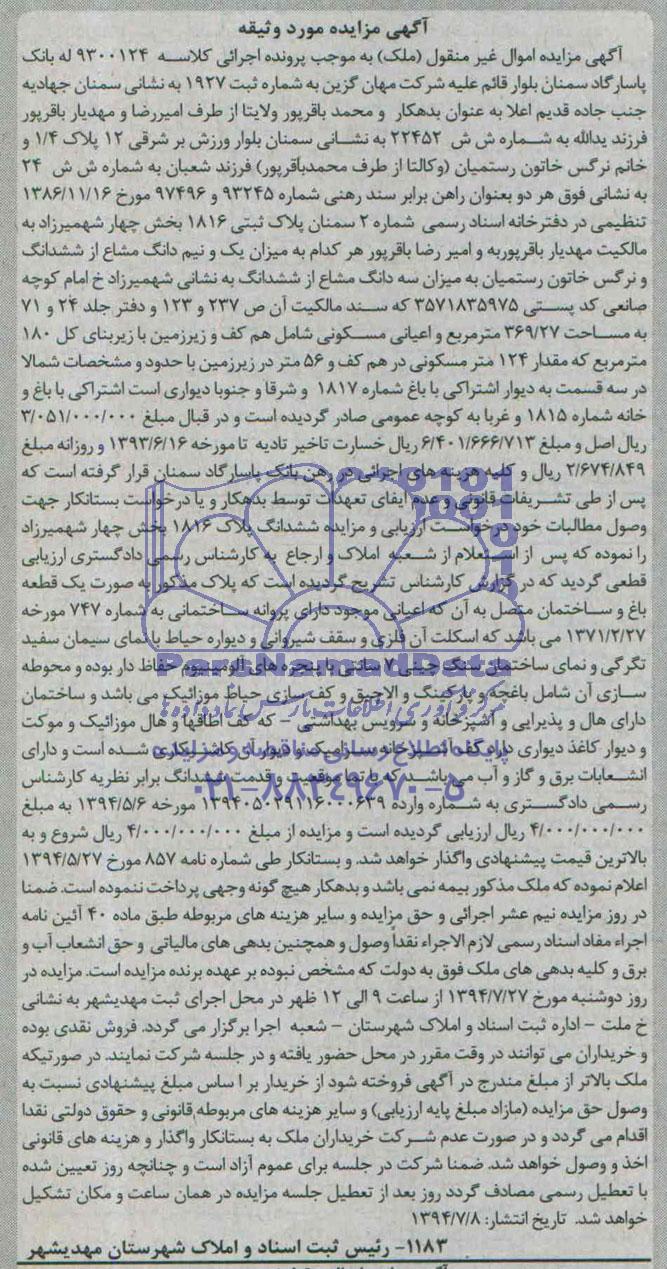 آگهی مزایده مورد وثیقه
آگهی مزایده اموال غیر منقول (ملک) به موجب پرونده اجرائی کلاسه ۹۳۰۰۱۲۴ له بانک
پاسارگاد سمنان بلوار قائم علیه شرکت مهان گزین به شماره ثبت ۱۹۲۷ به نشانی سمنان جهادیه
جنب جاده قدیم اعلا به عنوان بدهکار و محمد باقرپور ولایتا از طرف امیررضا و مهدیار باقرپور
فرزند یدالله به شماره ش ش ۲۲۴۵۲ به نشانی سمنان بلوار ورزش بر شرقی ۱۲ پلاک ۱/۴ و
خانم نرگس خاتون رستمیان (وکالتا از طرف محمدباقرپور) فرزند شعبان به شماره ش ش ۲۴
به نشانی فوق هر دو بعنوان راهن برابر سند رهنی شماره ۹۳۲۴۵ و ۹۷۴۹۶ مورخ ۱۳۸۶/۱۱/۱۶
تنظیمی در دفترخانه اسناد رسمی شماره ۲ سمنان پلاک ثبتی ۱۸۱۶ بخش چهار شهمیرزاد به
مالکیت مهدیار باقرپوربه و امیر رضا باقرپور هر کدام به میزان یک و نیم دانگ مشاع از ششدانگ
و نرگس خاتون رستمیان به میزان سه دانگ مشاع از ششدانگ به نشانی شهمیرزاد خ امام کوچه
صانعی کد پستی ۳۵۷۱۸۳۵۹۷۵ که سند مالکیت آن ص ۲۳۷ و ۱۲۳ و دفتر جلد ۲۴ و ۷۱
به مساحت ۳۶۹/۲۷ مترمربع و اعیانی مسکونی شامل هم کف و زیرزمین با زیربنای کل ۱۸۰
مترمربع که مقدار ۱۲۴ متر مسکونی در هم کف و ۵۶ متر در زیرزمین با حدود و مشخصات شمالا
در سه قسمت به دیوار اشتراکی با باغ شماره ۱۸۱۷ و شرقا و جنوبا دیواری است اشتراکی با باغ و
خانه شماره ۱۸۱۵ و غربا به کوچه عمومی صادر گردیده است و در قبال مبلغ ۳/۰۵۱/۰۰۰/۰۰۰
ریال اصل و مبلغ ۶/۴۰۱/۶۶۶/۷۱۳ ریال خسارت تاخیر تادیه تا مورخه ۱۳۹۳/۶/۱۶ و روزانه مبلغ
۲/۶۷۴/۸۴۹ ریال و کلیه هزینه های اجرائی در رهن بانک پاسارگاد سمنان قرار گرفته است که
پس از طی تشریفات قانونی و عدم ایفای تعهدات توسط بدهکار و یا درخواست بستانکار جهت
وصول مطالبات خود درخواست ارزیابی و مزایده ششدانگ پلاک ۱۸۱۶ بخش چهار شهمیرزاد
را نموده که پس از استعلام از شعبه املاک و ارجاع به کارشناس رسمی دادگستری ارزیابی
قطعی گردید که در گزارش کارشناس تشریح گردیده است که پلاک مذکور به صورت یک قطعه
باغ و ساختمان متصل به آن که اعیانی موجود دارای پروانه ساختمانی به شماره ۷۴۷ مورخه
۱۳۷۱/۲/۲۷ می باشد که اسکلت آن فلزی و سقف شیروانی و دیواره حیاط با نمای سیمان سفید
تگرگی و نمای ساختمان سنگ چینی ۷ سانتی با پنجره های آلومینیوم حفاظ دار بوده و محوطه
سازی آن شامل باغچه و پارکینگ و الاچیق و کف سازی حیاط موزائیک می باشد و ساختمان
دارای هال و پذیرایی و آشپزخانه و سرویس بهداشتی – که کف اطاقها و هال موزائیک و موکت
و دیوار کاغذ دیواری دارد کف آشپزخانه سرامیک و دیوار آن کاشی کاری شده است و دارای
انشعابات برق و گاز و آب می باشد که با توجه موقعیت و قدمت ششدانگ برابر نظریه کارشناس
رسمی دادگستری به شماره وارده ۱۳۹۴۰۵۰۲۹۱۱۶۰۰۰۶۳۹ مورخه ۱۳۹۴/۵/۶ به مبلغ
۴/۰۰۰/۰۰۰/۰۰۰ ریال ارزیابی گردیده است و مزایده از مبلغ ۴/۰۰۰/۰۰۰/۰۰۰ ریال شروع و به
بالاترین قیمت پیشنهادی واگذار خواهد شد. و بستانکار طی شماره نامه ۸۵۷ مورخ ۱۳۹۴/۵/۲۷
اعلام نموده که ملک مذکور بیمه نمی باشد و بدهکار هیچ گونه وجهی پرداخت ننموده است. ضمنا
در روز مزایده نیم عشر اجرائی و حق مزایده و سایر هزینه های مربوطه طبق ماده ۴۰ آئین نامه
اجراء مفاد اسناد رسمی لازم الاجراء نقداً وصول و همچنین بدهی های مالیاتی و حق انشعاب آب و
برق و کلیه بدهی های ملک فوق به دولت که مشخص نبوده بر عهده برنده مزایده است. مزایده در
روز دوشنبه مورخ ۱۳۹۴/۷/۲۷ از ساعت ۹ الی ۱۲ ظهر در محل اجرای ثبت مهدیشهر به نشانی
خ ملت – اداره ثبت اسناد و املاک شهرستان – شعبه اجرا برگزار می گردد. فروش نقدی بوده
و خریداران می توانند در وقت مقرر در محل حضور یافته و در جلسه شرکت نمایند. در صورتیکه
ملک بالاتر از مبلغ مندرج در آگهی فروخته شود از خریدار بر ا ساس مبلغ پیشنهادی نسبت به
وصول حق مزایده (مازاد مبلغ پایه ارزیابی) و سایر هزینه های مربوطه قانونی و حقوق دولتی نقدا
اقدام می گردد و در صورت عدم شرکت خریداران ملک به بستانکار واگذار و هزینه های قانونی
اخذ و وصول خواهد شد. ضمنا شرکت در جلسه برای عموم آزاد است و چنانچه روز تعیین شده
با تعطیل رسمی مصادف گردد روز بعد از تعطیل جلسه مزایده در همان ساعت و مکان تشکیل
خواهد شد. تاریخ انتشار: ۱۳۹۴/۷/۸
۱۱۸۳– رئیس ثبت اسناد و املاک شهرستان مهدیشهر
ParsNamadData
پایگاه اطلاع رسانی مناقصه و مزایده
۰۲۱-۸۸۳۴۹۶۷۰-۵